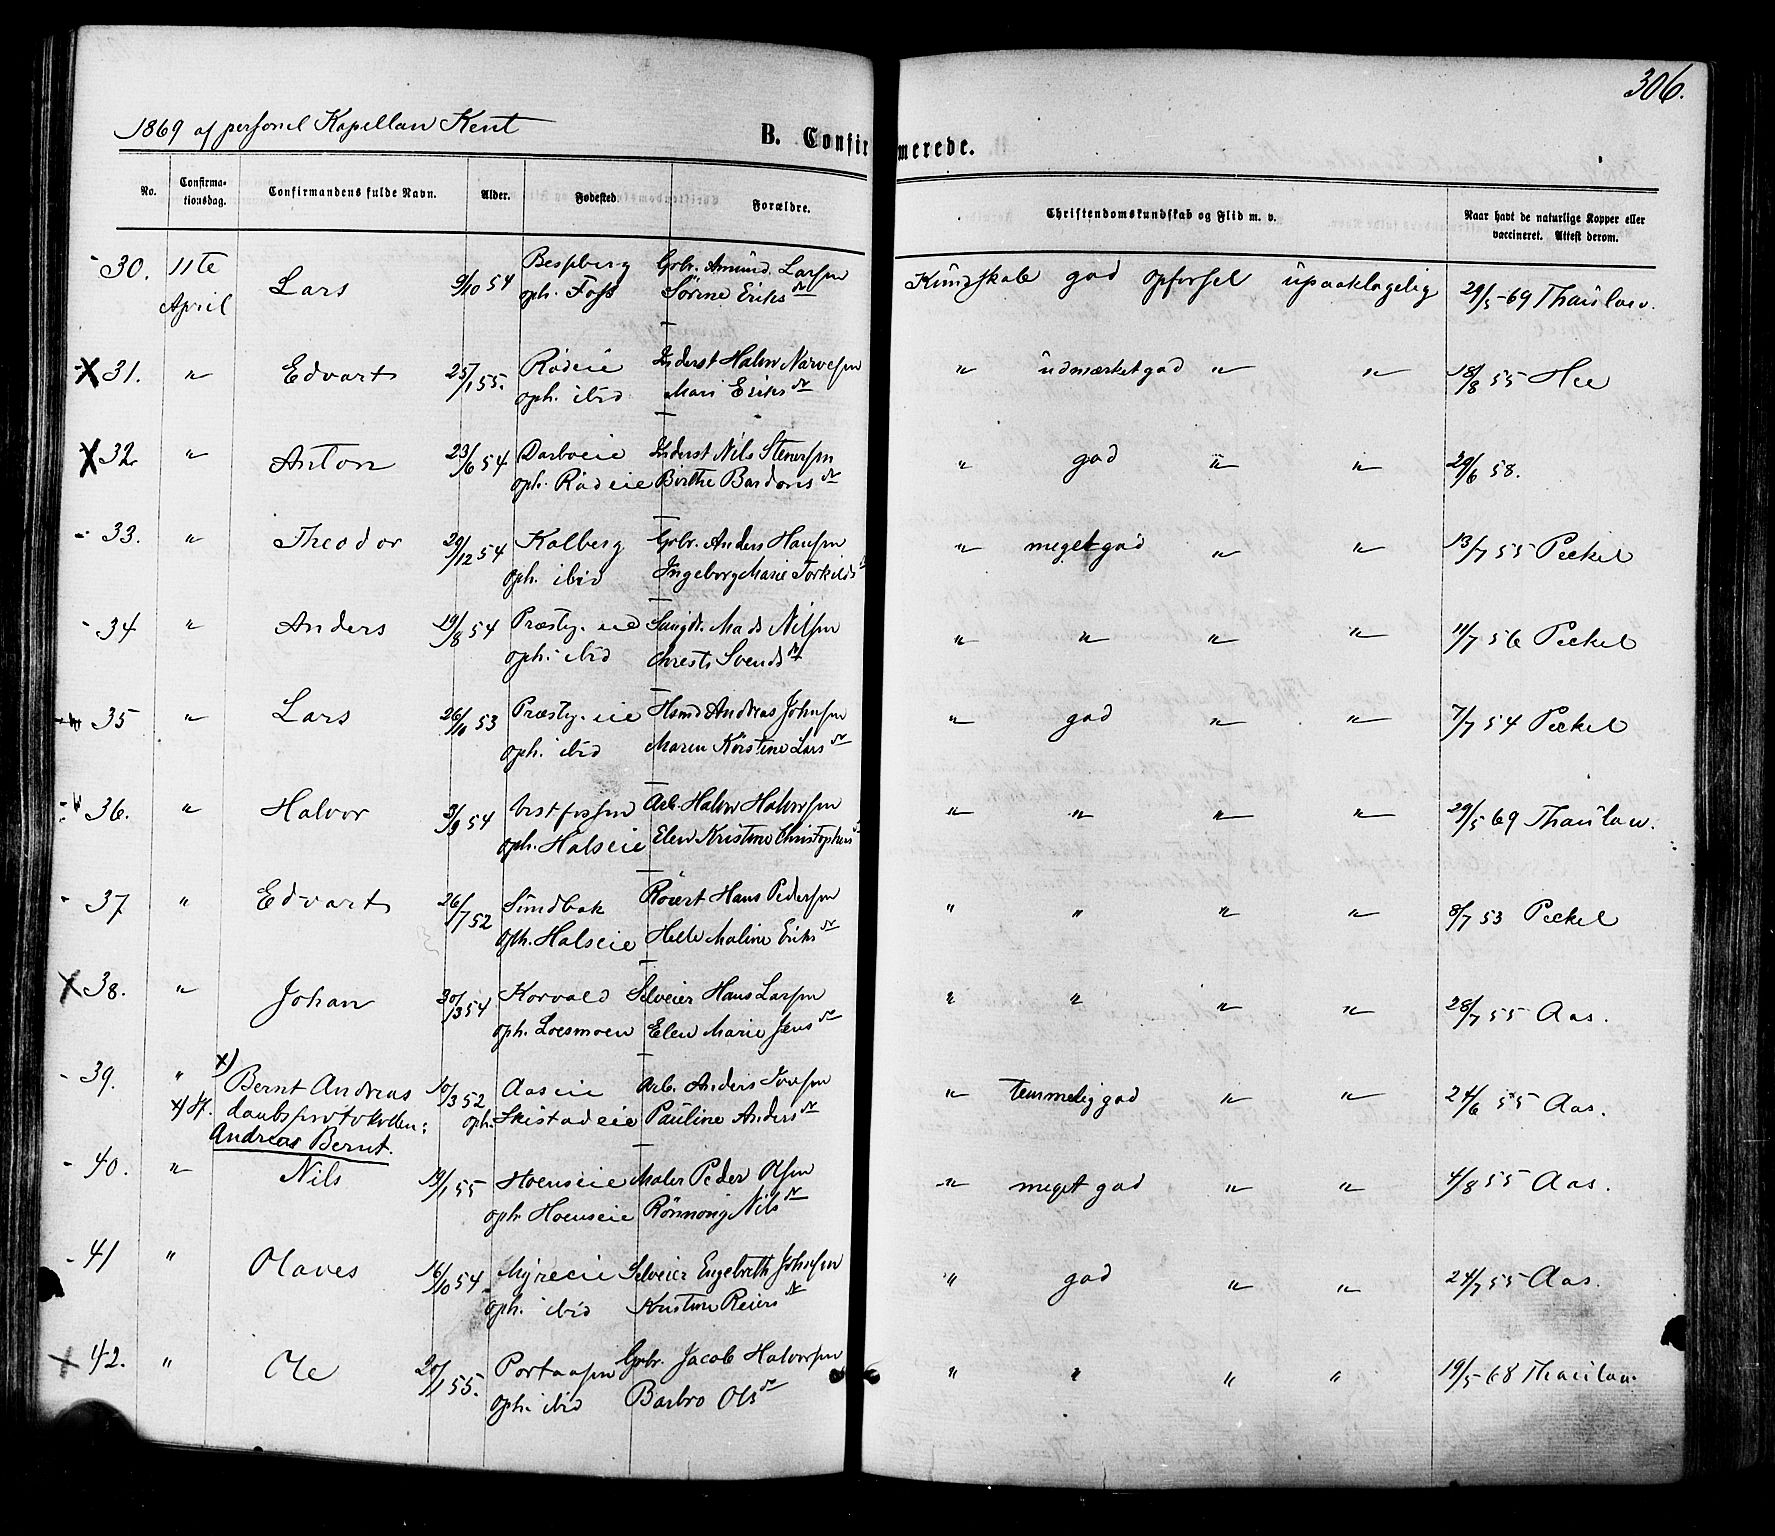 306.
1869 af personel Kapellan Kent
B. Confirmerede.
No. Confirmationsdag. Confirmandens fulde Navn. Alder. Fødested. Forældre. Christendomskundskab og Flid m. v. Naar havt de naturlige Kopper eller vaccineret. Attest derom.
30. 11te Lars 9/10 54 Bespberg Grb. Amund Larsen Kundskab god opførsel upaaklagelig 29/5-69 Thaulow.
April oph. Foss Sørine Eriksdr
31. " Edvart 25/1 55. Rødeie Inderst Halvor Narvesen " udmærket god " " 18/8 55 Hee
oph. ibid Mari Eriksdr
32. " Anton 23/6 54 Darboeie Inderst Nils Stenersen " god " " 29/6 58.
oph. Rødeie Birthe Bardonsdr
33. " Theodor 29/12 54 Kolberg Grb. Anders Hansen " meget god " " 13/7 55 Peckel
oph. ibid Ingeborg Marie Torkildsd
34 " Anders 19/8 54 Præstg. eie Mads Nilsen " " " " 11/7 56 Peckel
oph. ibid Svendsdr
35 " Lars 26/10 53 Præstg. eie Hsmd Andreas Johnsen " god " " 7/7 54 Peckel
oph. ibid Maren Kirstine Larsdr
36. " Halvor 3/9 54 Vestfossen Arb. Halvor Halvorsen " " " " 29/5 69 Thaulow.
oph. Halseie Elen Kristine Christophersd
37 " Edvart 26/7 52 Sundbak Hans Pedersen " " " " 8/7 53 Peckel
oph. Halseie Helle Maline Eriksdr
38. " Johan 20/3 54 Korvald Selveier Hans Larsen " " " " 28/7 55 Aas.
oph. Loesmoen Elen Marie Jensdr
39. " x) Bernt Andreas 10/3 52 Aaseie Arb. Anders " temmelig god " " 24/6 55 Aas.
x) If. daabsprotokollen: oph. Skistadeie Pauline Andersdr
Andreas Bernt.
40. " Nils 19/1 55 Hoenseie Maler Peder Olsen " meget god " " 4/8 55 Aas.
oph. Hoenseie Rønnoug Nilsdr
41 " Olaves 16/10 54 Myreeie Selveier Engebreth Johnsen " god " " 24/7 55 Aas.
oph. ibid Kristine Reiersdr
42. " Ole 20/1 55. Portaasen Grb. Jacob Halvorsen " " " " 19/5-68 Thaulow.
oph. ibid Barbro Olsdr